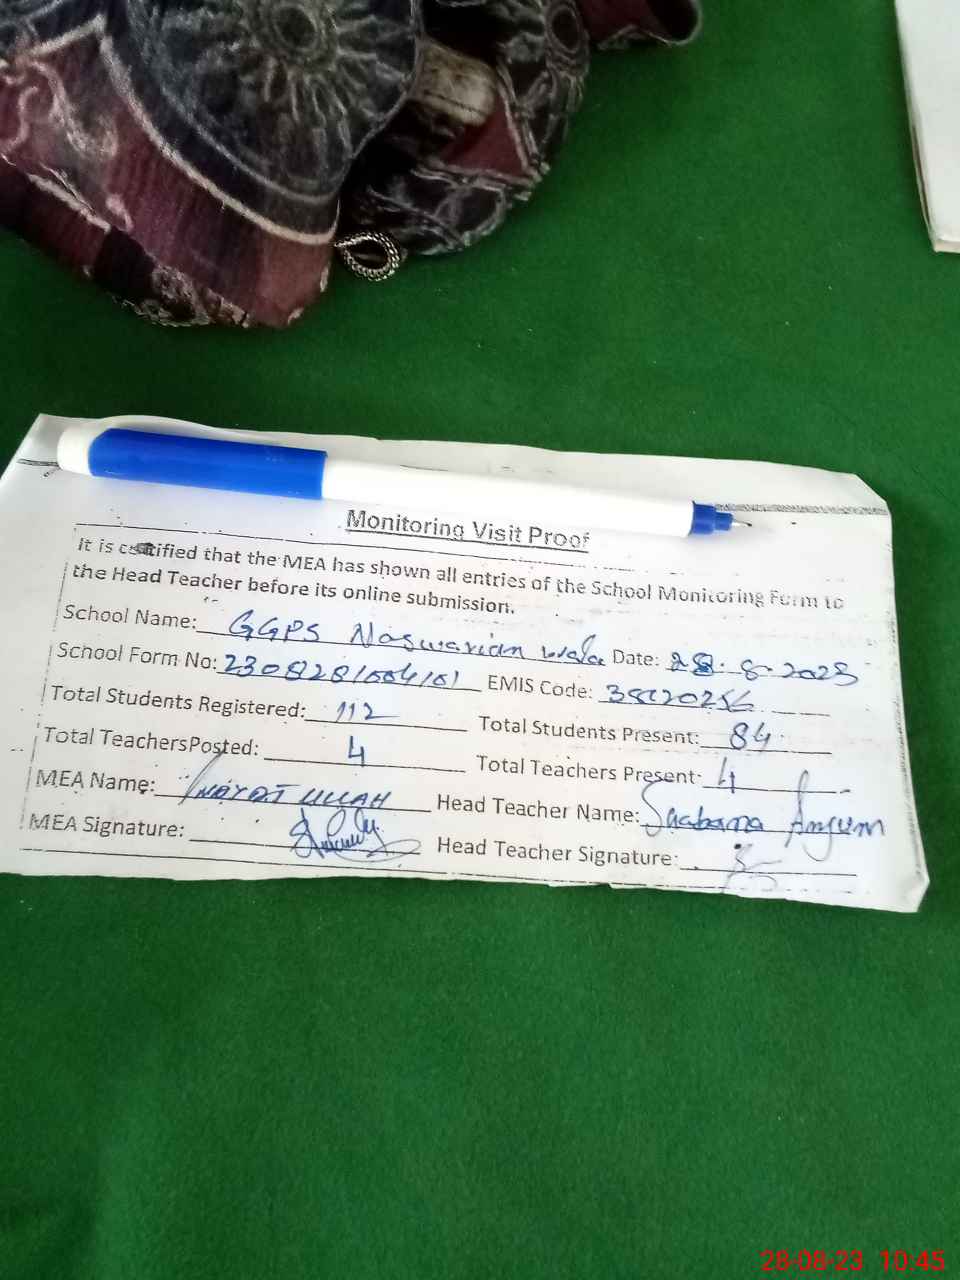 Monitoring Visit Proof
It is certified that the MEA has shown all entries of the School Monitoring Form to
the Head Teacher before its online submission.
School Name: GGPS Naswarian wala Date: 28.8.2023
School Form No: 2308281004101 EMIS Code:
Total Students Registered: 112 Total Students Present: 84
Total TeachersPosted: 4 Total Teachers Present: 4
MEA Name: INAYAT ULLAH Head Teacher Name: Shabana Anjum
MEA Signature: Head Teacher Signature:
28-08-23 10:45